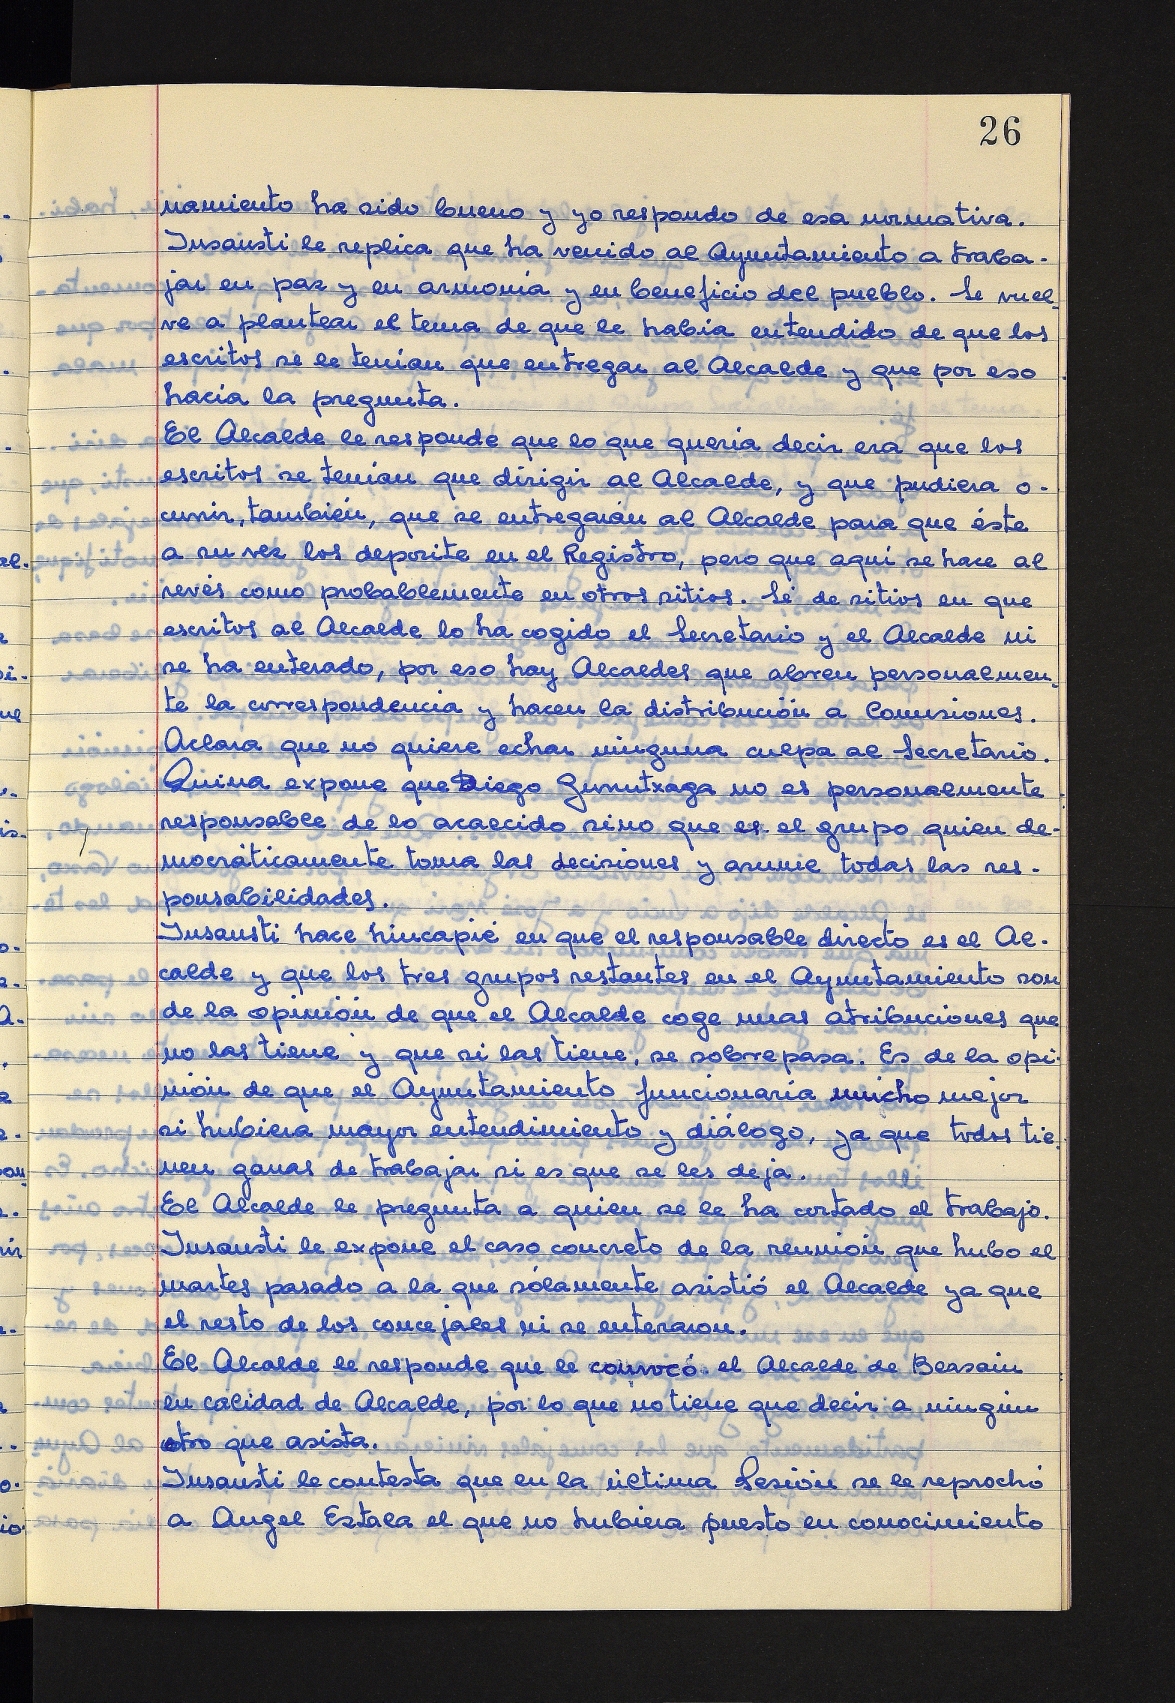 26
namiento ha sido bueno y yo respondo de esa normativa.
Insausti le replica que ha venido al Ayuntamiento a traba-
jar en paz y en armonía y en beneficio del pueblo. Se vuel_
ve a plantear el tema de que le había entendido de que los
escritos se le tenían que entregar al Alcalde y que por eso
hacía la pregunta.
El Alcalde le responde que lo que quería decir era que los
escritos se tenían que dirigir al Alcalde, y que pudiera o-
currir, también, que se entregarán al Alcalde para que éste
a su vez los deposite en el Registro, pero que aquí se hace al
revés como probablemente en otros sitios. Sé de sitios en que
escritos al Alcalde lo ha cogido el Secretario y el Alcalde ni
se ha enterado, por eso hay Alcaldes que abren personalmen_
te la correspondencia y hacen la distribución a Comisiones.
Aclara que no quiere echar ninguna culpa al Secretario.
que Diego Gurrutxaga no es personalmente
responsable de lo acaecido sino que es el grupo quien de-
mocráticamente toma las decisiones y asume todas las res-
ponsabilidades.
Insausti hace hincapié en que el responsable directo es el Al-
calde y que los tres grupos restantes en el Ayuntamiento son
de la opinión de que el Alcalde coge unas atribuciones que
no las tiene y que si las tiene, se sobrepasa. Es de la opi-
nión de que el Ayuntamiento funcionaría mucho mejor
si hubiera mayor entendimiento y diálogo, ya que todos tie_
nen ganas de trabajar si es que se les deja.
El Alcalde le pregunta a quien se le ha cortado el trabajo.
Insausti le expone el caso concreto de la reunión que hubo el
martes pasado a la que sólamente asistió el Alcalde ya que
el resto de los concejales ni se enteraron.
El Alcalde le responde que le convocó el Alcalde de Beasain
en calidad de Alcalde, por lo que no tiene que decir a ningún
otro que asista.
Insausti le contesta que en la última Sesión se le reprochó
a Angel Estala el que no hubiera puesto en conocimiento